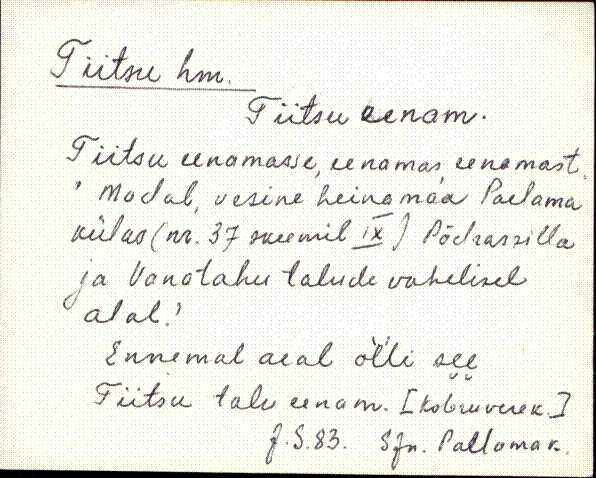 Tiitsu hm.
Tiitsu eenam.
Tiitsu eenamasse, eenamas, eenamast.
' Madal, vesine heinamaa Paelama
külas (nr. 37 skeemil IX) Põdrassilla
ja Vanatahu talude vahelisel
alal.'
Ennemal aeal õlli see
Tiitsu talu eenam. [Kobruverek.]
J. S. 83. Sfn. Pallamak.